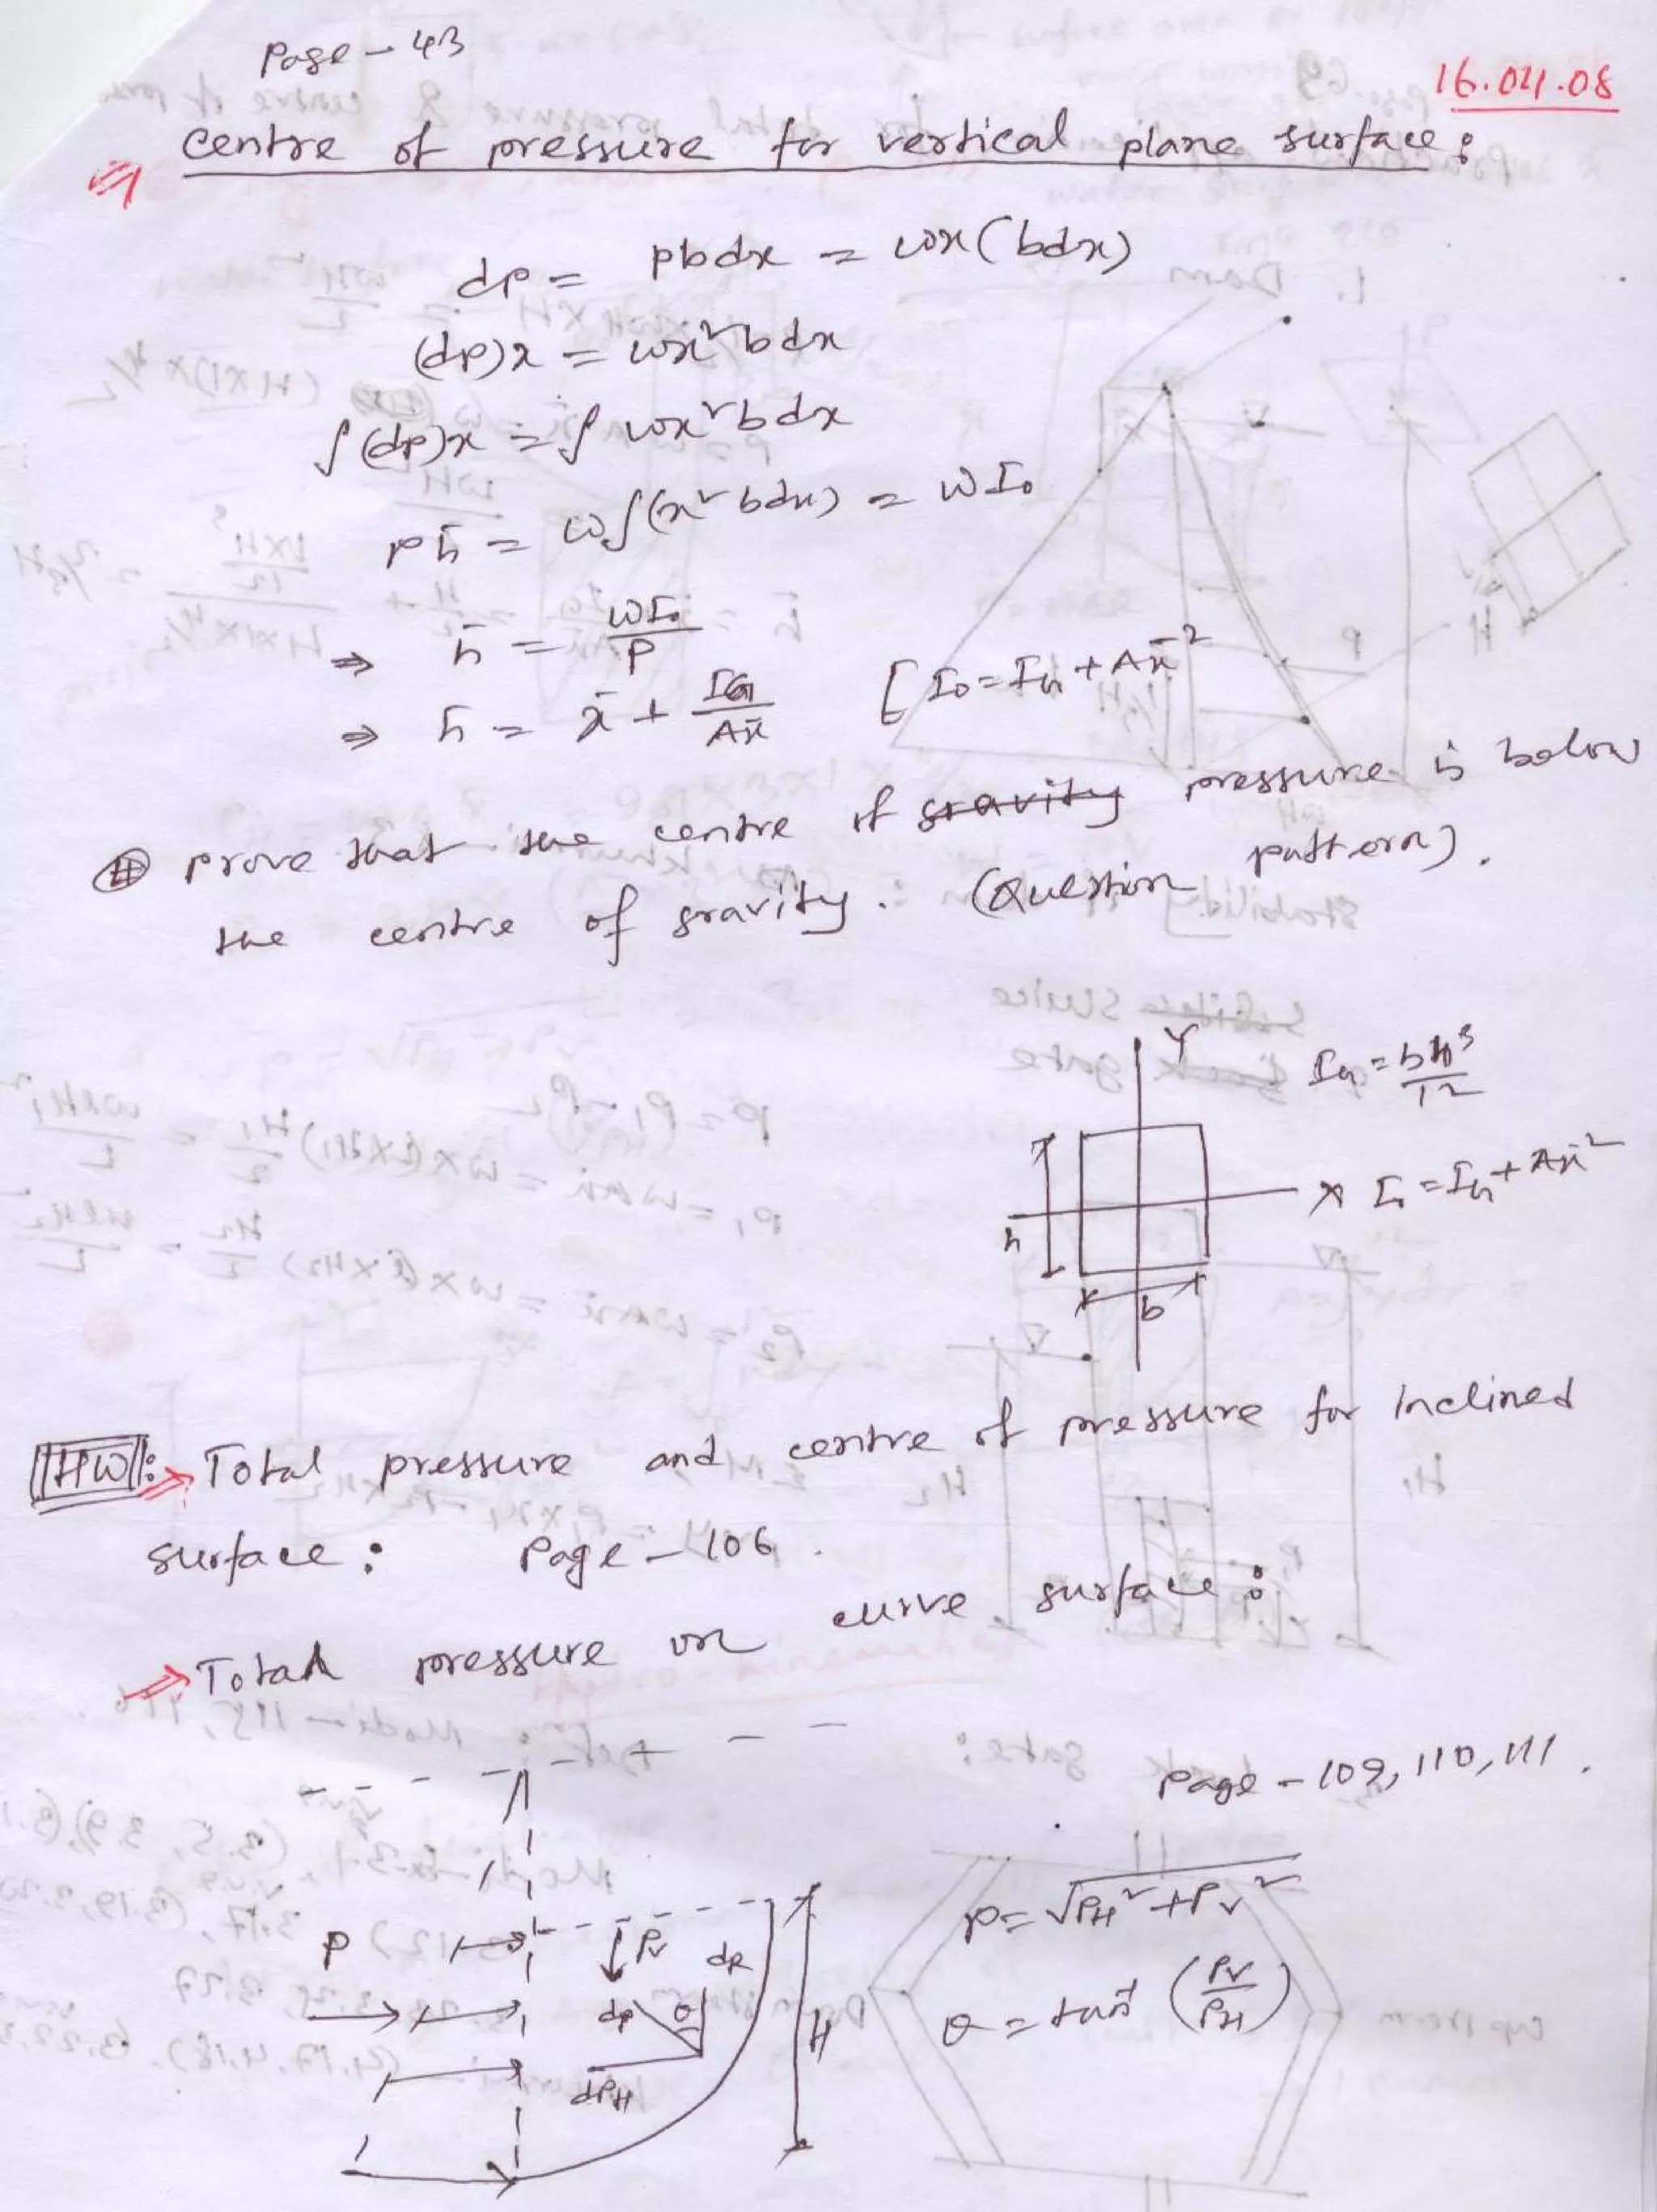 Page - 43
16.04.08
centre of pressure for vertical plane surface:
dp = pbdx = wx(bdx)
(dp)x = wx²bdx
∫(dp)x = ∫wx²bdx
ph̄ = w∫(x²bdx) = wI₀
⇒ h̄ = wI₀/P
⇒ h̄ = x̄ + IG/Ax̄ [I₀ = IG + Ax̄²
# prove that the centre of gravity pressure is below
the centre of gravity. (Question pattern).
Y
IG = bh³/12
X I₀ = IG + Ax̄²
h
b
HW: ⇒ Total pressure and centre of pressure for Inclined
surface: Page - 106.
⇒ Total pressure on curve surface:
Page - 109, 110, 111.
P = √PH² + Pv²
P Pv dp
θ = tan⁻¹ (Pv/PH)
dp θ H
dPH